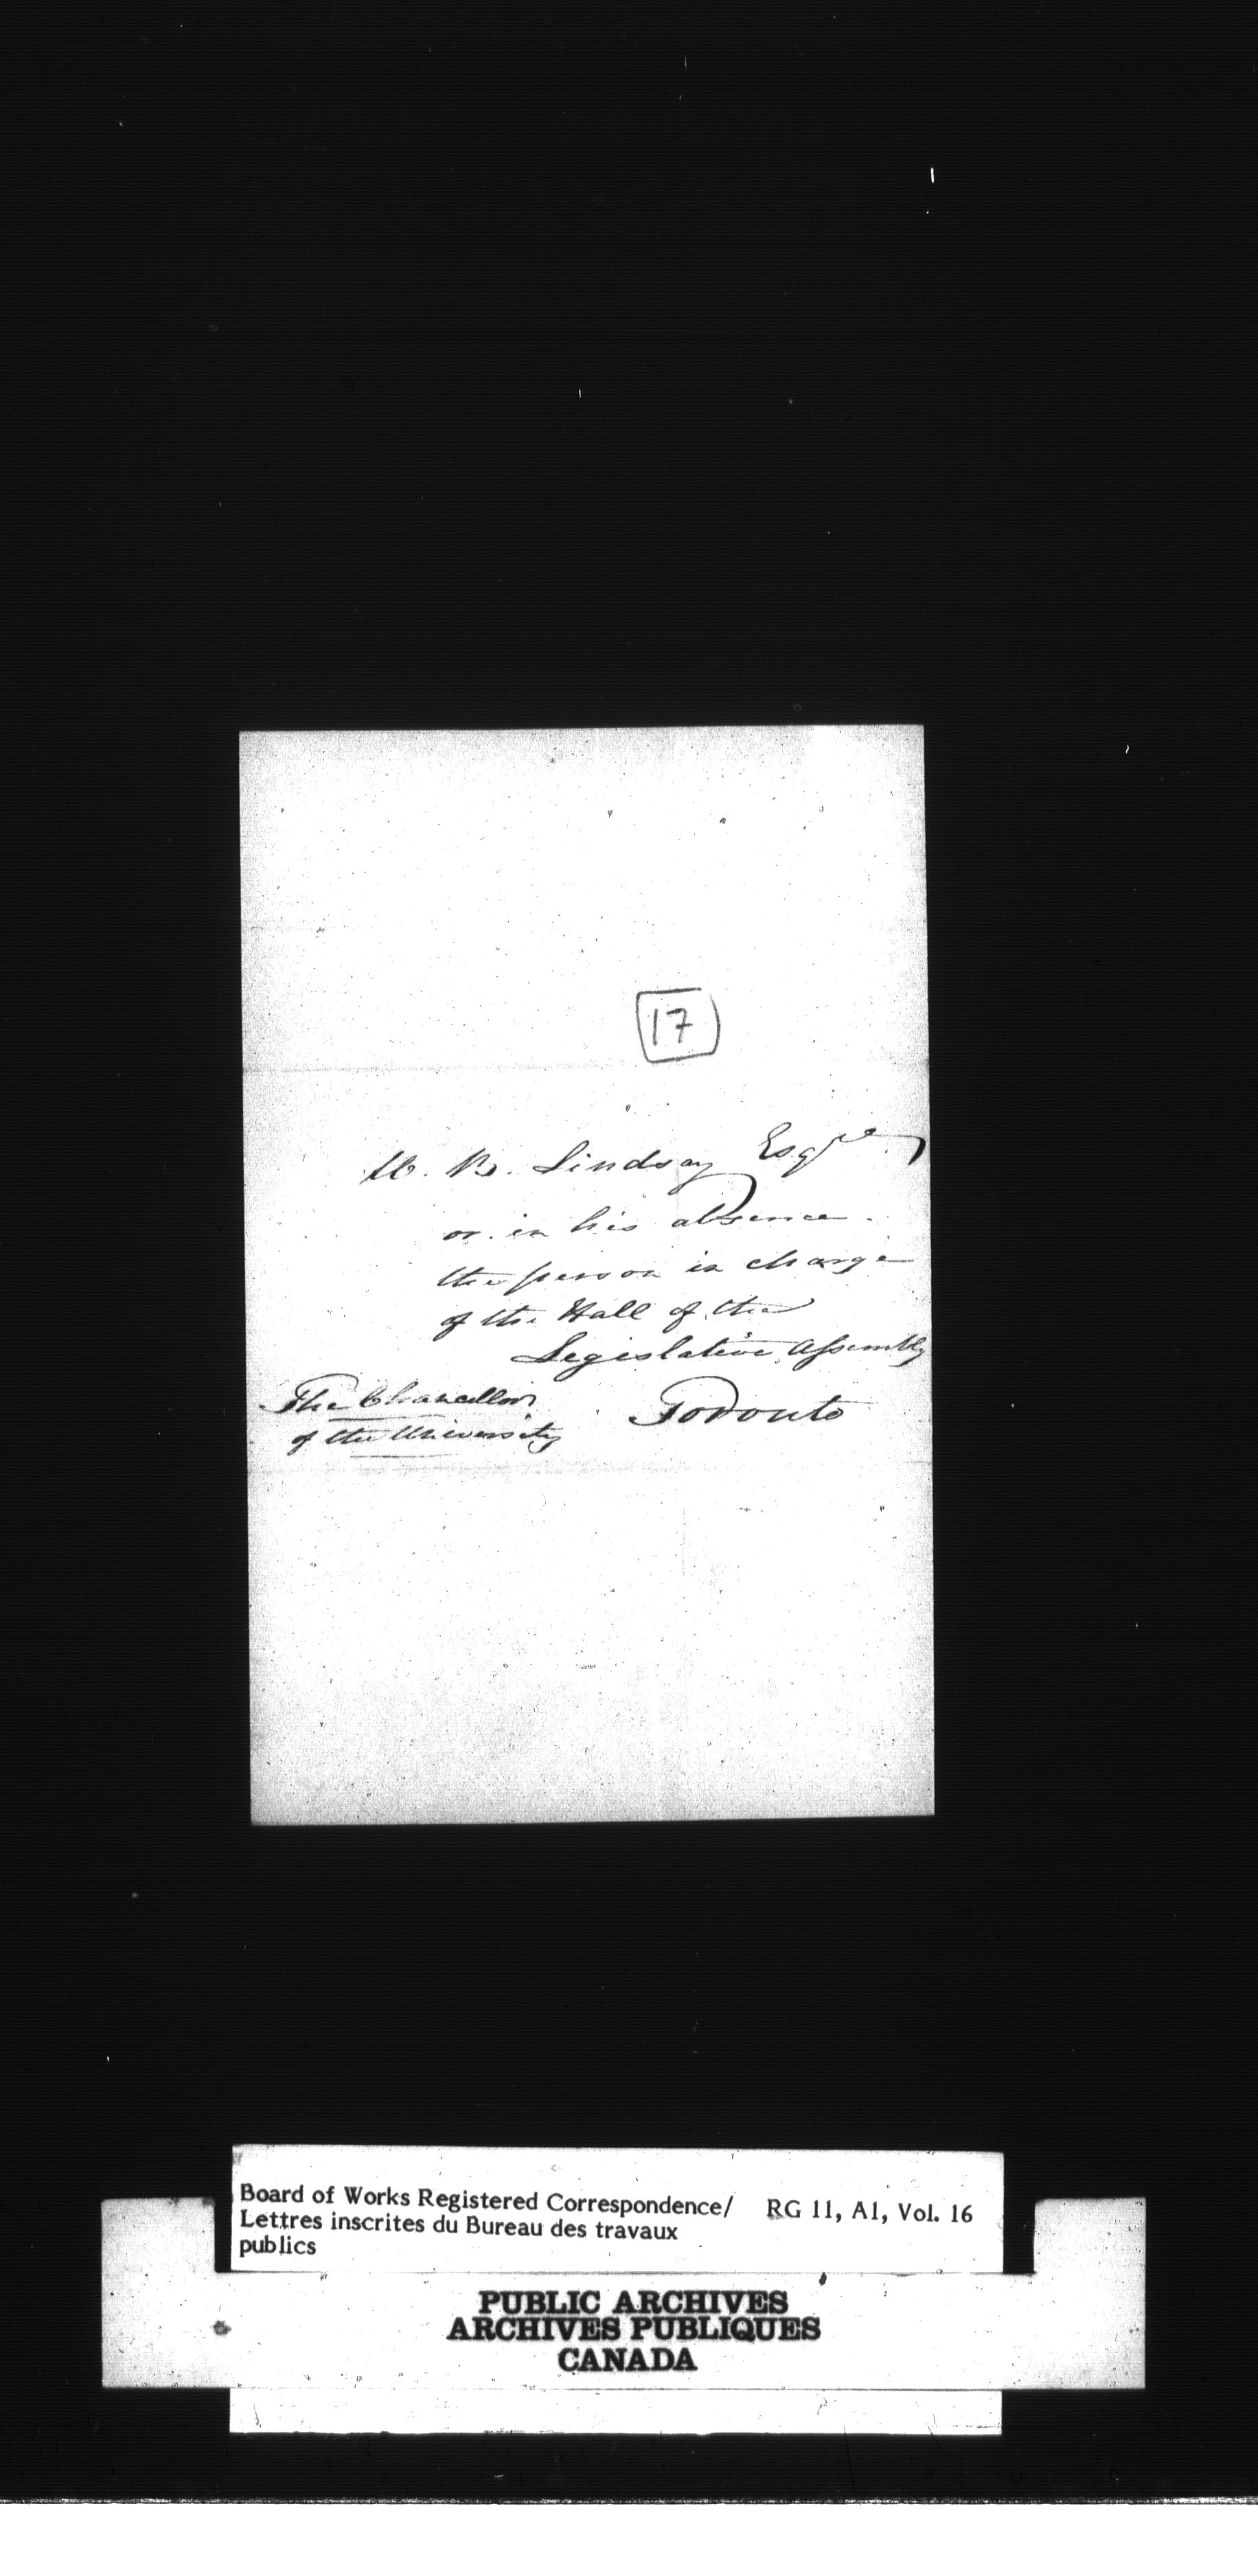 17
W. B. Lindsay Esqre
or in his absence
the person in charge
of the Hall of the
Legislative Assembly
Toronto
The Chancellor
of the University
Board of Works Registered Correspondence/
Lettres inscrites du Bureau des travaux
publics
RG 11, A1, Vol. 16
PUBLIC ARCHIVES
ARCHIVES PUBLIQUES
CANADA